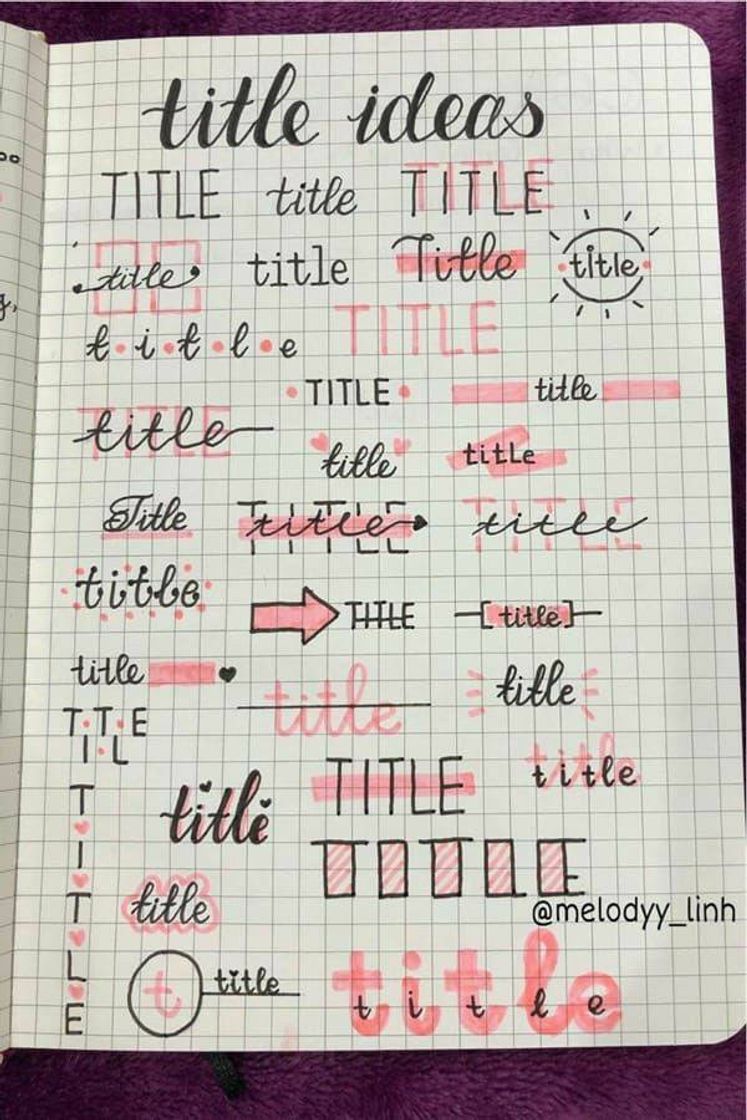 title ideas
TITLE title TITLE
title title Title title
t i t l e TITLE
TITLE title
TITLE
title
title title
Title TITLE title TITLE title
title
TITLE title
title
title title
TITLE
TITLE title title
TITLE
title
TITLE
title
@melodyy_linh
t title
title
t i t l e